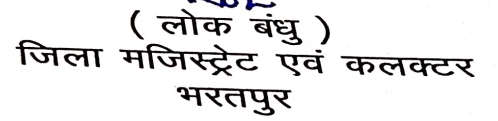 ( लोक बंधु )
जिला मजिस्ट्रेट एवं कलक्टर
भरतपुर